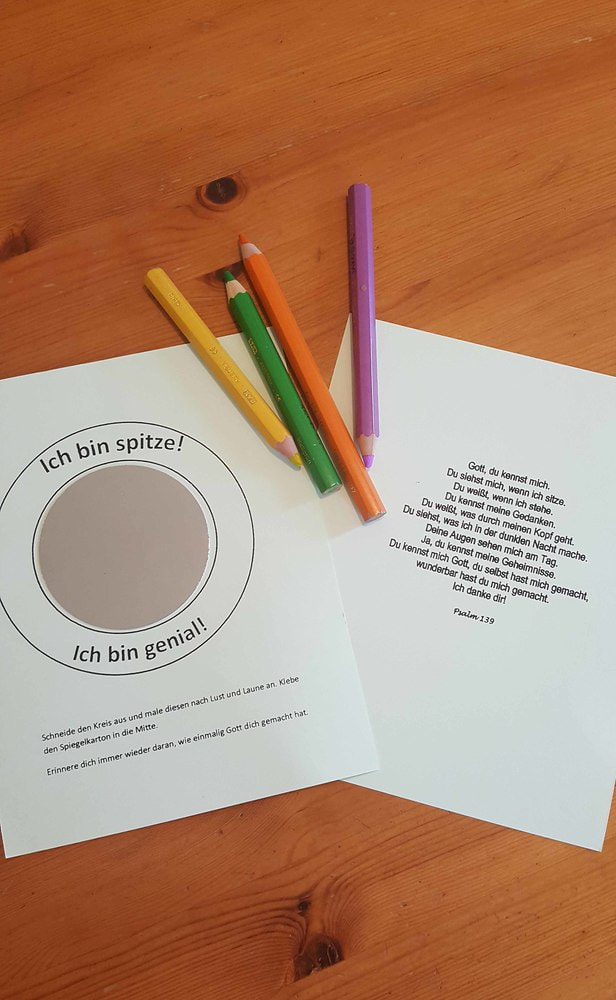 Ich bin spitze!
Ich bin genial!
Schneide den Kreis aus und male diesen nach Lust und Laune an. Klebe
den Spiegelkarton in die Mitte.
Erinnere dich immer wieder daran, wie einmalig Gott dich gemacht hat.
Gott, du kennst mich.
Du siehst mich, wenn ich sitze.
Du weißt, wenn ich stehe.
Du kennst meine Gedanken.
Du weißt, was durch meinen Kopf geht.
Du siehst, was ich in der dunklen Nacht mache.
Deine Augen sehen mich am Tag.
Ja, du kennst meine Geheimnisse.
Du kennst mich Gott, du selbst hast mich gemacht,
wunderbar hast du mich gemacht.
Ich danke dir!
Psalm 139